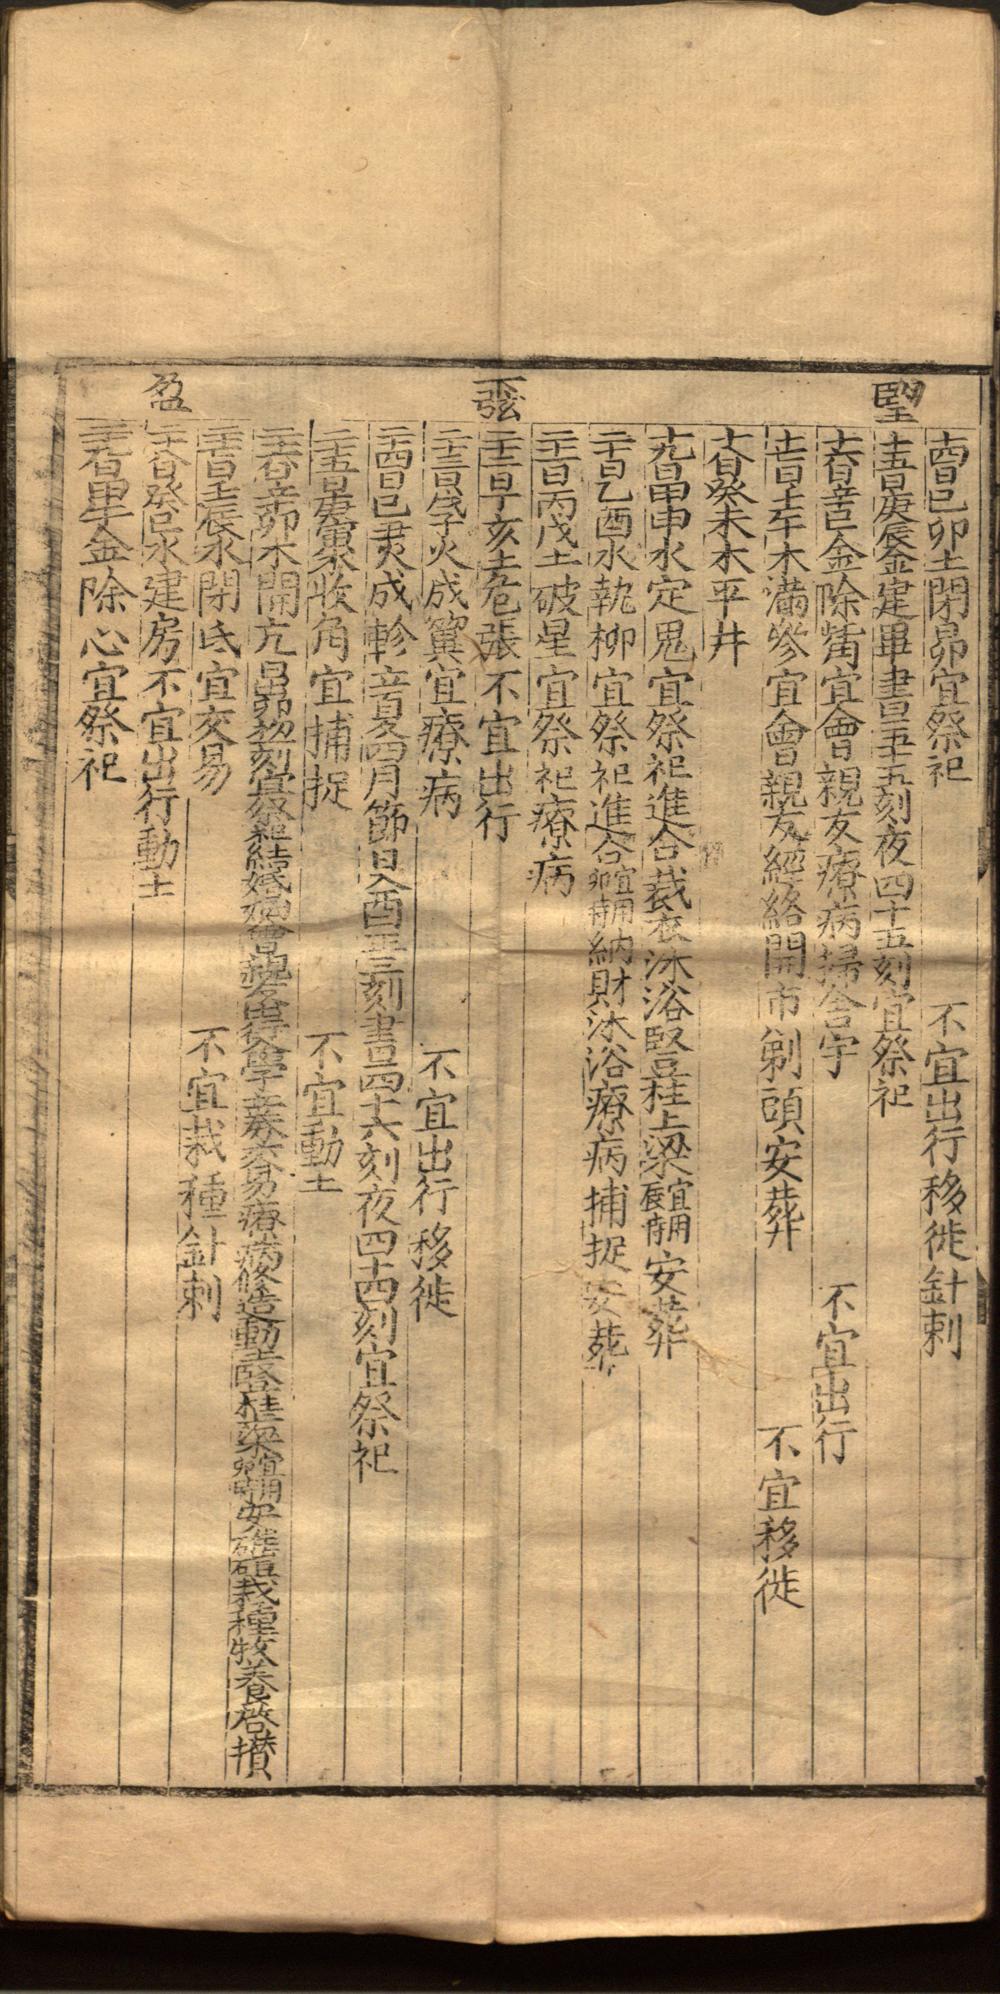 望
下弦
盈
十四日己卯土閉昴宜祭祀 不宜出行移徙針刺
十五日庚辰金建畢晝五十五刻夜四十五刻宜祭祀
十六日辛巳金除觜宜會親友療病掃舍宇 不宜出行
十七日壬午木滿參宜會親友經絡開市剃頭安葬 不宜移徙
十八日癸未木平井
十九日甲申水定鬼宜祭祀進人口裁衣沐浴竪柱上梁宜用辰時安葬
二十日乙酉水執柳宜祭祀進人口宜用卯時納財沐浴療病捕捉安葬
二十一日丙戌土破星宜祭祀療病
二十二日丁亥土危張不宜出行
二十三日戊子火成翼宜療病 不宜出行移徙
二十四日己丑火成軫立夏四月節日入酉正三刻晝五十六刻夜四十四刻宜祭祀
二十五日庚寅木收角宜捕捉 不宜動土
二十六日辛卯木開亢日出卯初刻宜祭祀結婚姻會親友出行入學立券交易療病修造動土竪柱上梁宜用卯時安碓磑栽種牧養啓攢
二十七日壬辰水閉氐宜交易 不宜栽種針刺
二十八日癸巳水建房不宜出行動土
二十九日甲午金除心宜祭祀